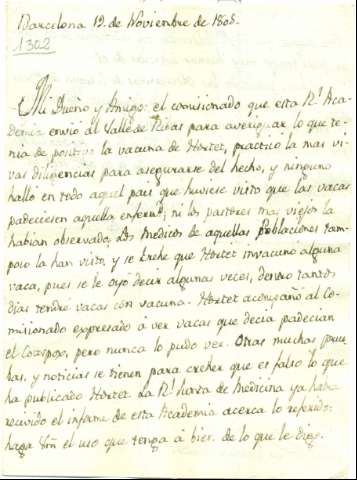 Barcelona 12 de Noviembre de 1805.
1302
Mi Dueño y Amigo: el comisionado que esta Rl. Aca-
demia envió al Valle de Ribas para averiguar lo que te-
nia de positivo la vacuna de Hortet, practicó la mas vi-
vas diligencias para asegurarse del hecho, y ninguno
halló en todo aquel pais que huviese visto que las vacas
padeciesen aquella enfermd; ni los pastores mas viejos la
habian observado, Los Medicos de aquellas Poblaciones tam-
poco la han visto, y se crehe que Hortet invacunó alguna
vaca, pues se le oyó decir algunas veces, dentro tantos
dias tendré vacas con vacuna. Hortet acompañó al Co-
misionado expresado á ver vacas que decia padecian
el Cowpog, pero nunca lo pudo ver. Otras muchas prue-
bas, y noticias se tienen para creher que es falso lo que
ha publicado Hortet. La Rl. Junta de Medicina ya habrá
recivido el informe de esta Academia acerca lo referido:
haga Vm el uso que tenga á bien. de lo que le digo.